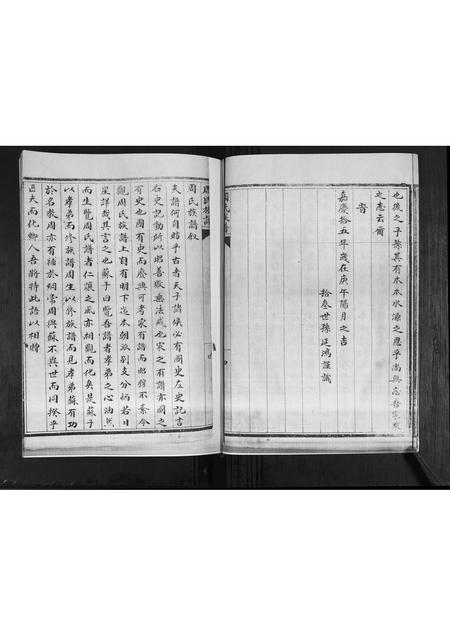 也後之子孫其有木本水源之思乎尚無忘吾家乘
之志云爾
時
嘉慶拾五年歲在庚午陽月之吉
拾叁世孫延鴻謹識
周氏族譜敘
夫譜何自昉乎古者天子諸侯必有國史左史記言
右史記動所以昭善敗垂法戒也家之有譜亦國之
有史也國有史而廢興可考家有譜而昭穆不紊今
觀周氏族譜上自有明下迄本朝派別支分炳若日
星詳哉其言之也蘇子曰覽吾譜者孝弟之心油然
而生覽周氏譜者仁讓之風亦相觀而化矣是蘇子
以孝弟而修族譜周生以修族譜而見孝弟蘇有功
於名教周亦有補於綱常周與蘇不異世而同揆乎
匡夫而化鄉人吾斯特此語以相贈